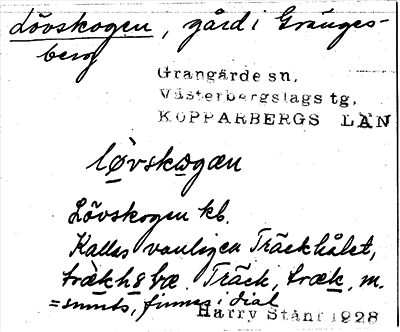 Lövskogen, gård i Gränges-
berg
Grangärde sn,
Västerbergslags tg,
KOPPARBERGS LÄN
løvskogæn
Lövskogen kb.
Kallas vanligen Träckhålet,
Träck, træk, m.
= smuts, finnes i dial
Harry Ståhl 1928